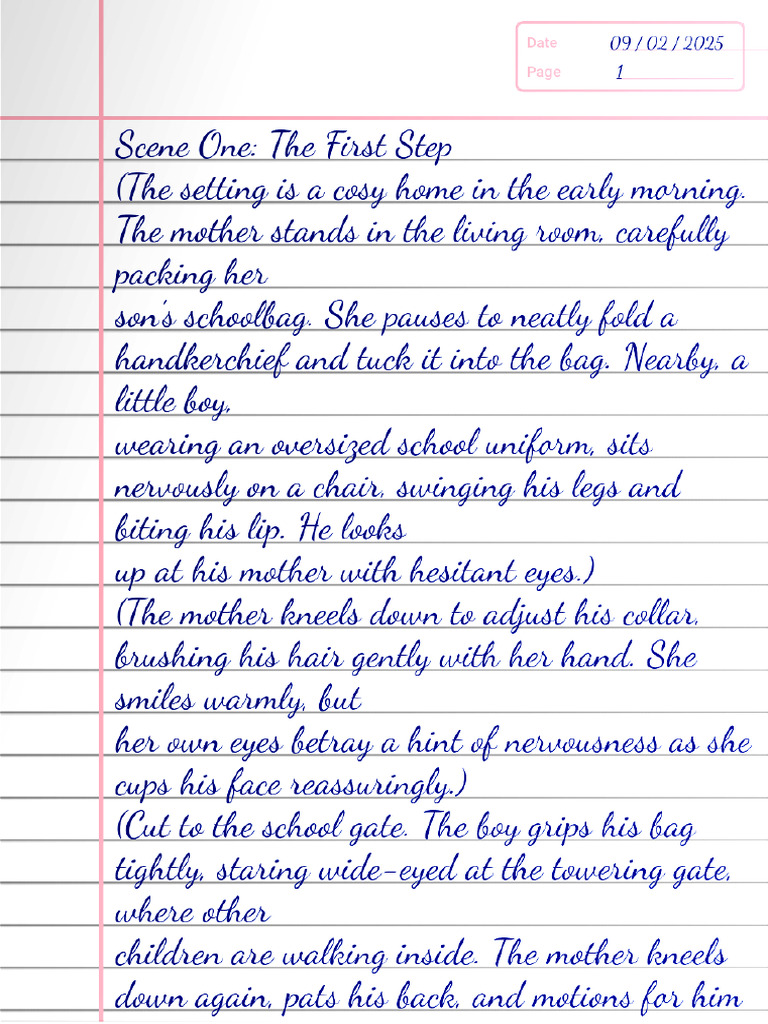 Date 09 / 02 / 2025
Page 1
Scene One: The First Step
(The setting is a cosy home in the early morning.
The mother stands in the living room, carefully
packing her
son's schoolbag. She pauses to neatly fold a
handkerchief and tuck it into the bag. Nearby, a
little boy,
wearing an oversized school uniform, sits
nervously on a chair, swinging his legs and
biting his lip. He looks
up at his mother with hesitant eyes.)
(The mother kneels down to adjust his collar,
brushing his hair gently with her hand. She
smiles warmly, but
her own eyes betray a hint of nervousness as she
cups his face reassuringly.)
(Cut to the school gate. The boy grips his bag
tightly, staring wide-eyed at the towering gate,
where other
children are walking inside. The mother kneels
down again, pats his back, and motions for him